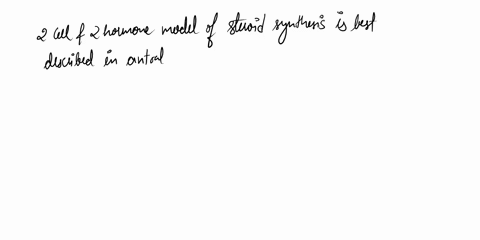 2 cell & 2 hormone model of steroid synthesis is best
described in antral